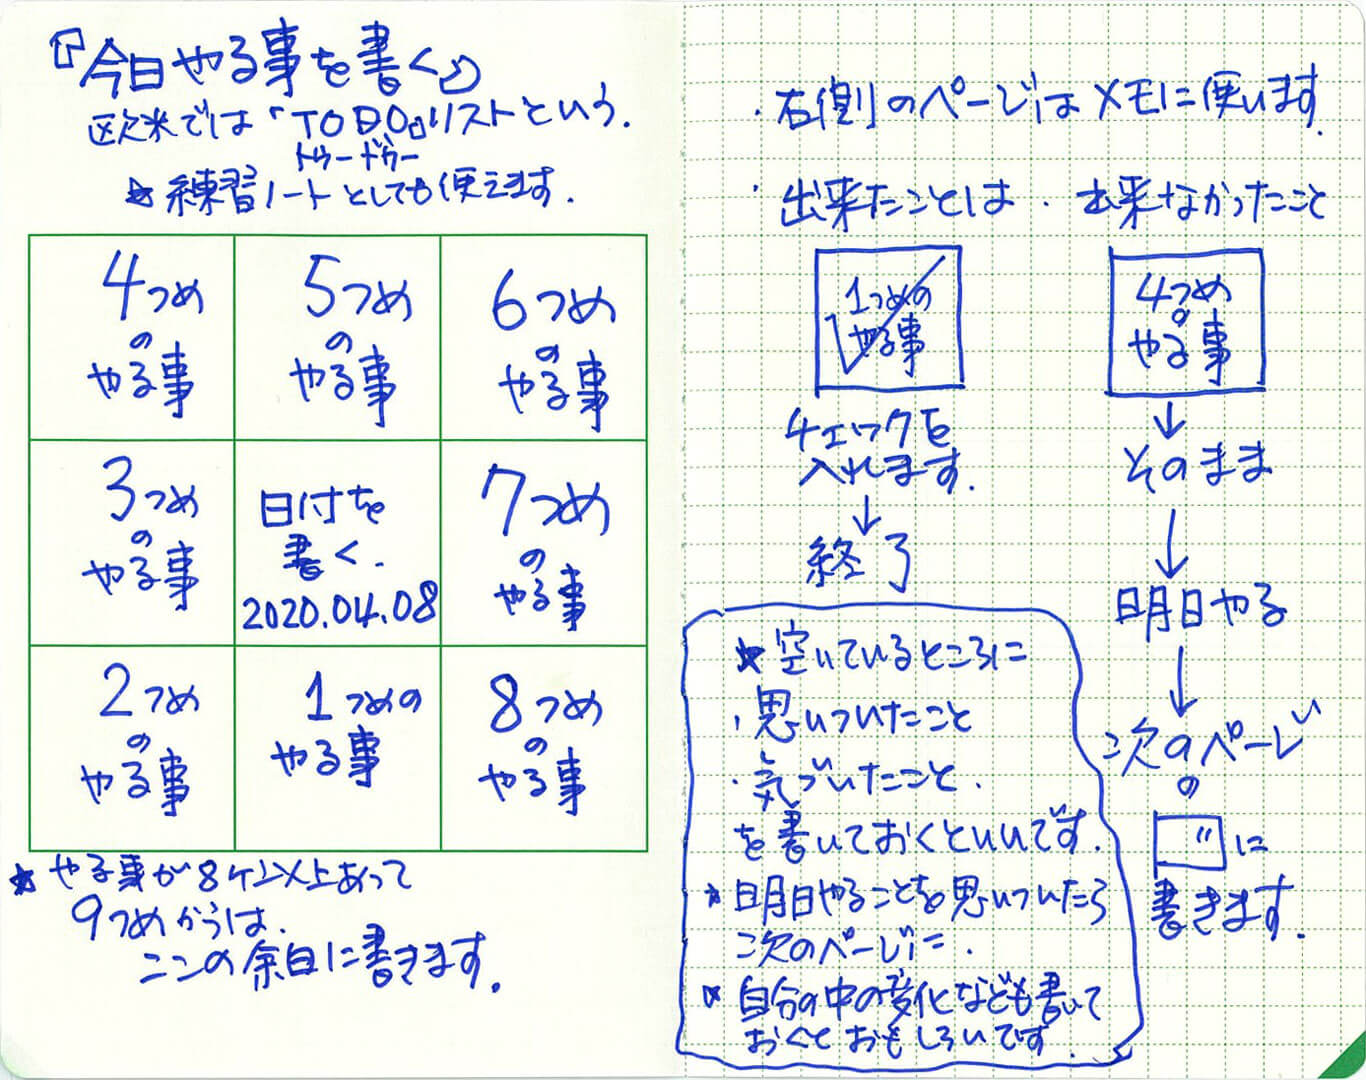 『今日やる事を書く』
欧米では「TODO」リストという.
トゥードゥー
★練習ノートとしても使えます.
4つめ
の
やる事
5つめ
の
やる事
6つめ
の
やる事
3つめ
の
やる事
日付を
書く.
2020.04.08
7つめ
の
やる事
2つめ
の
やる事
1つめの
やる事
8つめ
の
やる事
★やる事が8ケ以上あって
9つめからは.
ココの余白に書きます.
・右側のページはメモに使います.
・出来たことは
1つめの
やる事
チェックを
入れます.
↓
終了
・出来なかったこと
4つめ
の
やる事
↓
そのまま
↓
明日やる
↓
次のページ
の
〃に
書きます.
★空いているところに
・思いついたこと
・気づいたこと.
を書いておくといいです.
★明日やることを思いついたら
次のページに.
★自分の中の変化なども書いて
おくとおもしろいです.